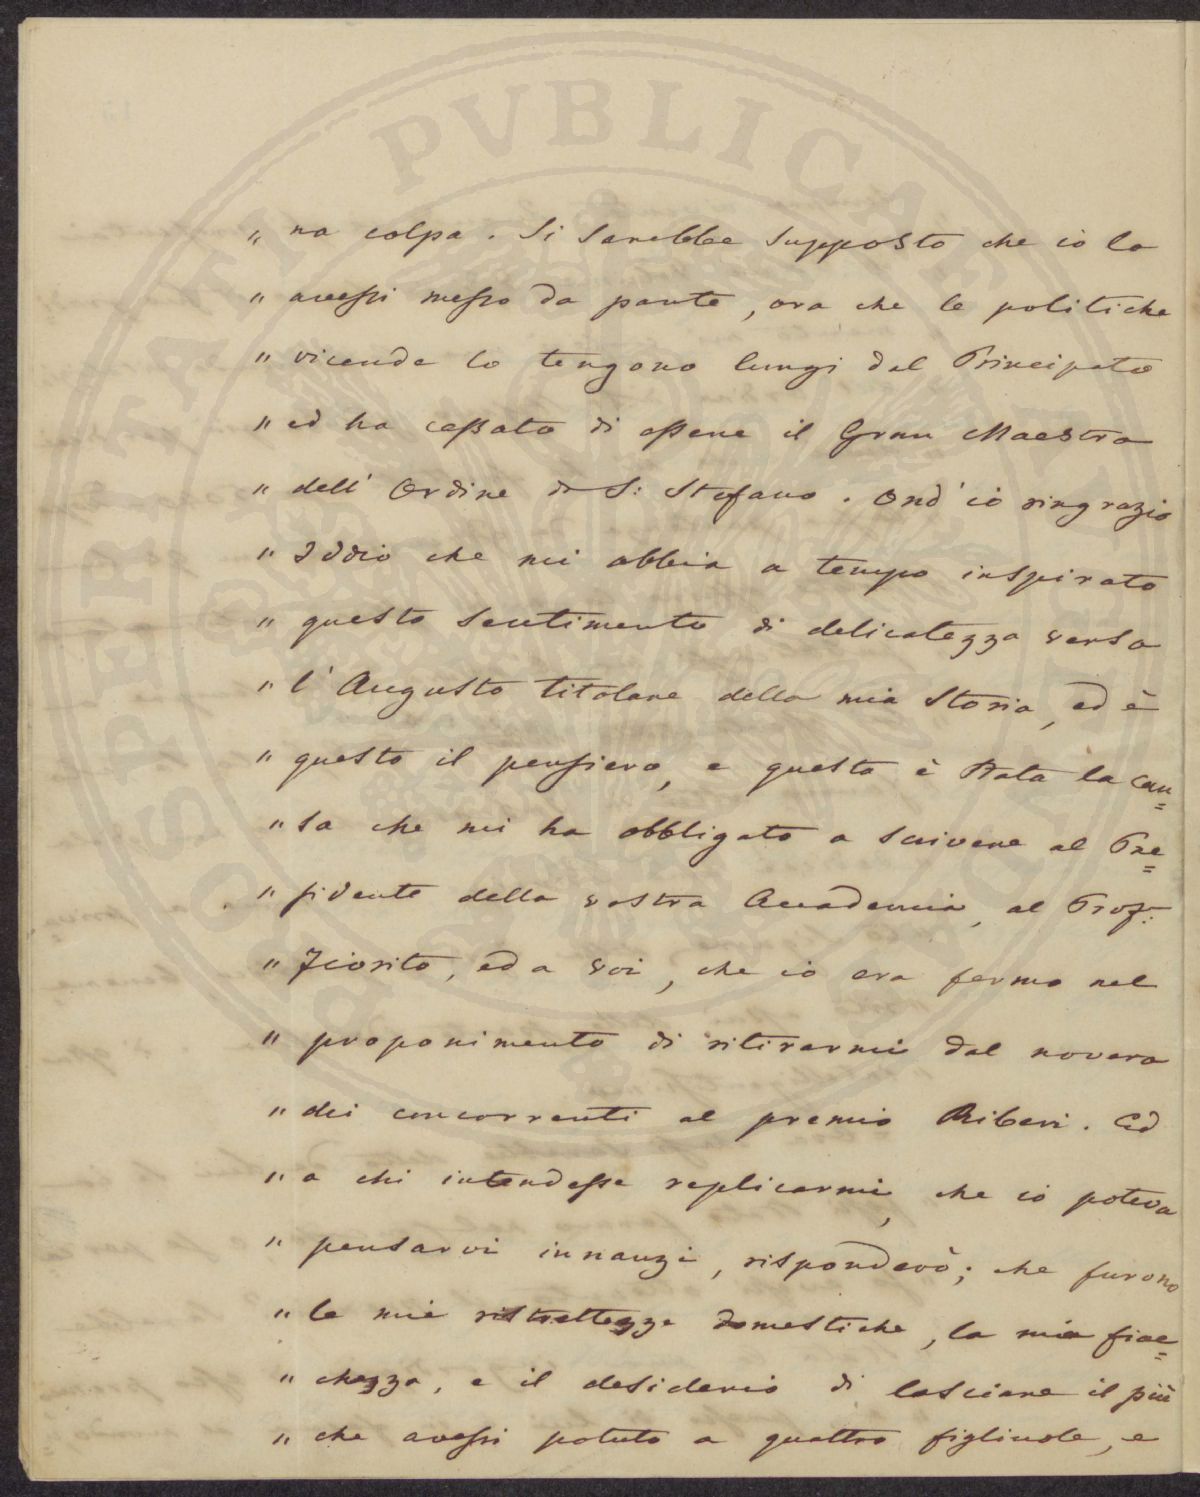 " na colpa. Si sarebbe supposto che io lo
" avessi messo da parte, ora che le politiche
" vicende lo tengono lungi dal Principato
" ed ha cessato di essere il Gran Maestro
" dell' Ordine di S: Stefano. Ond' io ringrazio
" Iddio che mi abbia a tempo inspirato
" questo sentimento di delicatezza verso
" l' Augusto titolare della mia storia, ed è
" questo il pensiero, e questa è stata la cau=
" sa che mi ha obbligato a scrivere al Pre=
" sidente della vostra Accademia, al Prof:
" Fiorito, ed a voi, che io era fermo nel
" proponimento di ritirarmi dal novero
" dei concorrenti al premio Riberi. Ed
" a chi intendesse replicarmi, che io poteva
" pensarvi innanzi, risponderò; che furono
" le mie ristrettezze domestiche, la mia fiac=
" chezza, e il desiderio di lasciare il più
" che avessi potuto a quattro figliuole, e
PROSPERITATI PVBLICAE